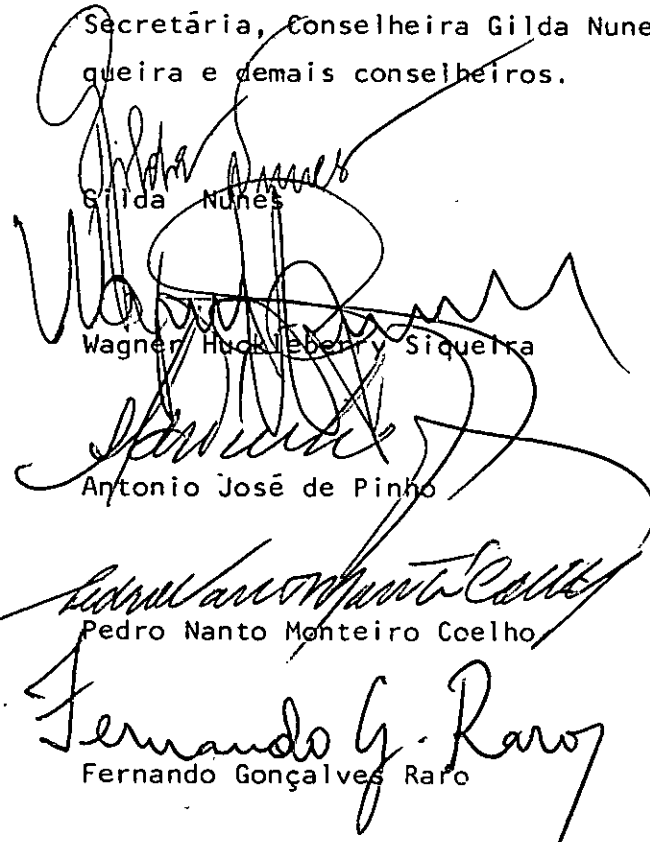 Secretária, Conselheira Gilda Nune
queira e demais conselheiros.
Gilda Nunes
Gilda Nunes
Wagner Huckleberry Siqueira
Antonio José de Pinho
Pedro Nanto Monteiro Coelho
Fernando G. Raro
Fernando Gonçalves Raro